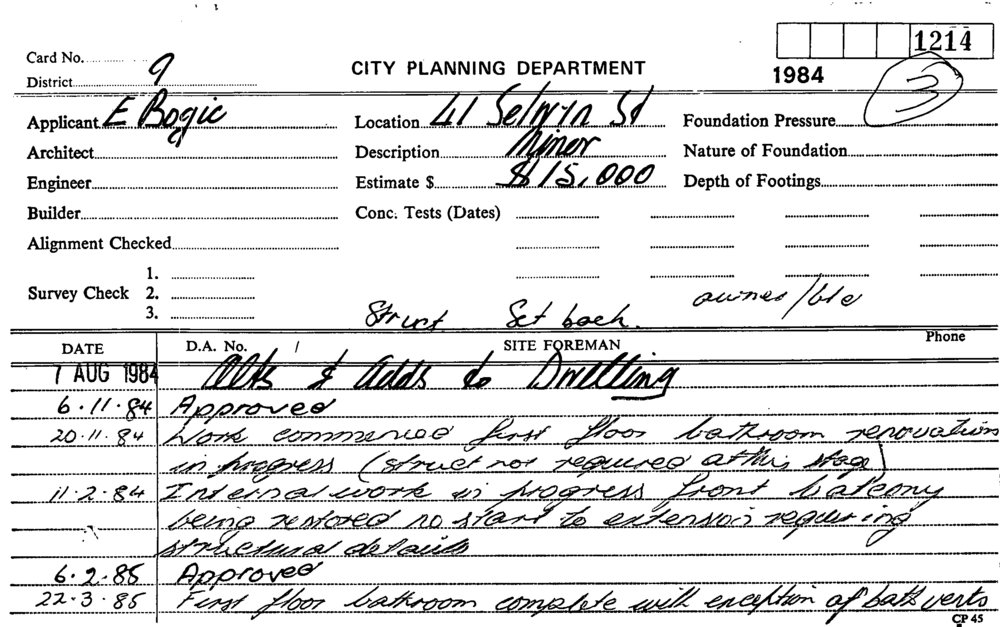 1214
Card No.
CITY PLANNING DEPARTMENT
1984
3
District 9
Applicant E Bogic
Location 41 Selwyn St
Foundation Pressure
Architect
Description Minor
Nature of Foundation
Engineer
Estimate $ $15,000
Depth of Footings
Builder
Conc. Tests (Dates)
Alignment Checked
1.
Survey Check 2.
3.
Struct Set back. owner/ble
DATE D.A. No. / SITE FOREMAN Phone
7 AUG 1984 Alts & Adds to Dwelling
6.11.84 Approved
20.11.84 Work commenced first floor bathroom renovation
in progress (struct not required at this stage)
11.2.84 Internal work in progress front balcony
being restored no start to extension requiring
structural details
6.2.85 Approved
22.3.85 First floor bathroom complete with exception of bath vents
CP 45